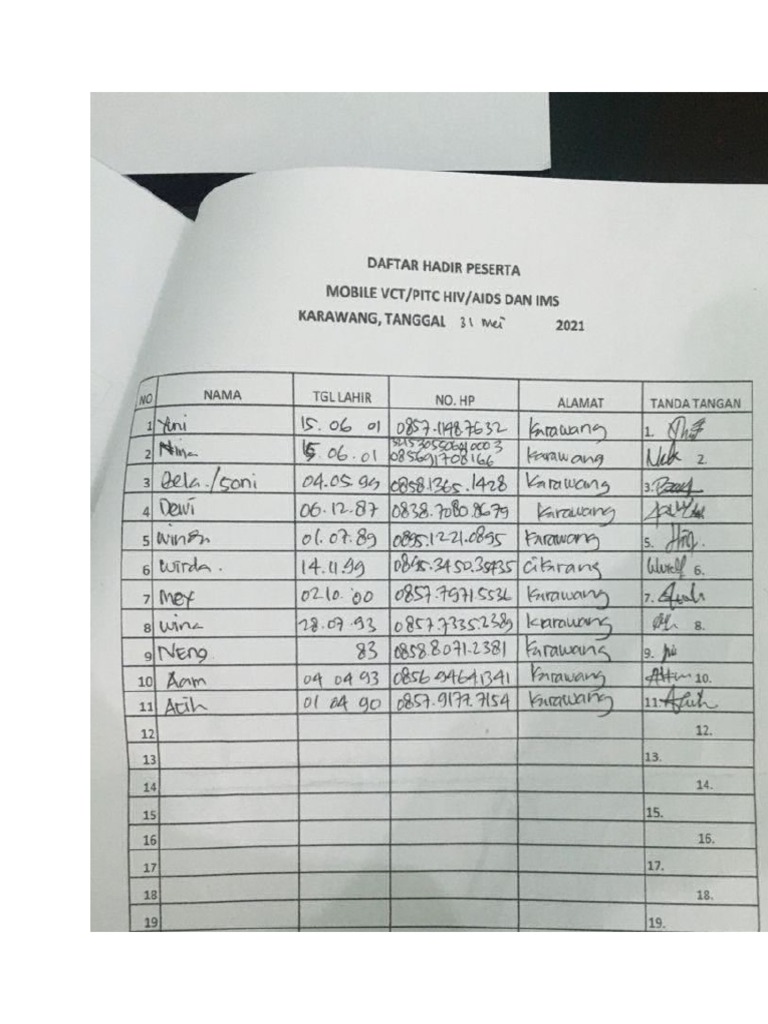 DAFTAR HADIR PESERTA
MOBILE VCT/PITC HIV/AIDS DAN IMS
KARAWANG, TANGGAL 31 Mei 2021
NO NAMA TGL LAHIR NO. HP ALAMAT TANDA TANGAN
1 Yuni 15.06 01 0857.11487632 Karawang 1.
2 Nina 15.06.01 085691708166 Karawang 2.
3 Bela./Soni 04.05.99 0858.1365.1428 Karawang 3.
4 Dewi 06.12.87 0838.7080.8679 Karawang
5 01.07.89 0895.1221.0895 Karawang 5.
6 Wirda. 14.11.99 0895.3450.35435 Cikarang 6.
7 Mey 02.10.00 0857.79715536 Karawang 7.
8 Wina 28.07.93 0857.7335.2389 Karawang 8.
9 Neng 83 0858.8071.2381 Karawang 9.
10 Aam 04 04 93 0856 94641341 Karawang 10.
11 Atih 01 04 90 0857.9177.7154 Karawang 11. Atih
12 12.
13 13.
14 14.
15 15.
16 16.
17 17.
18 18.
19 19.